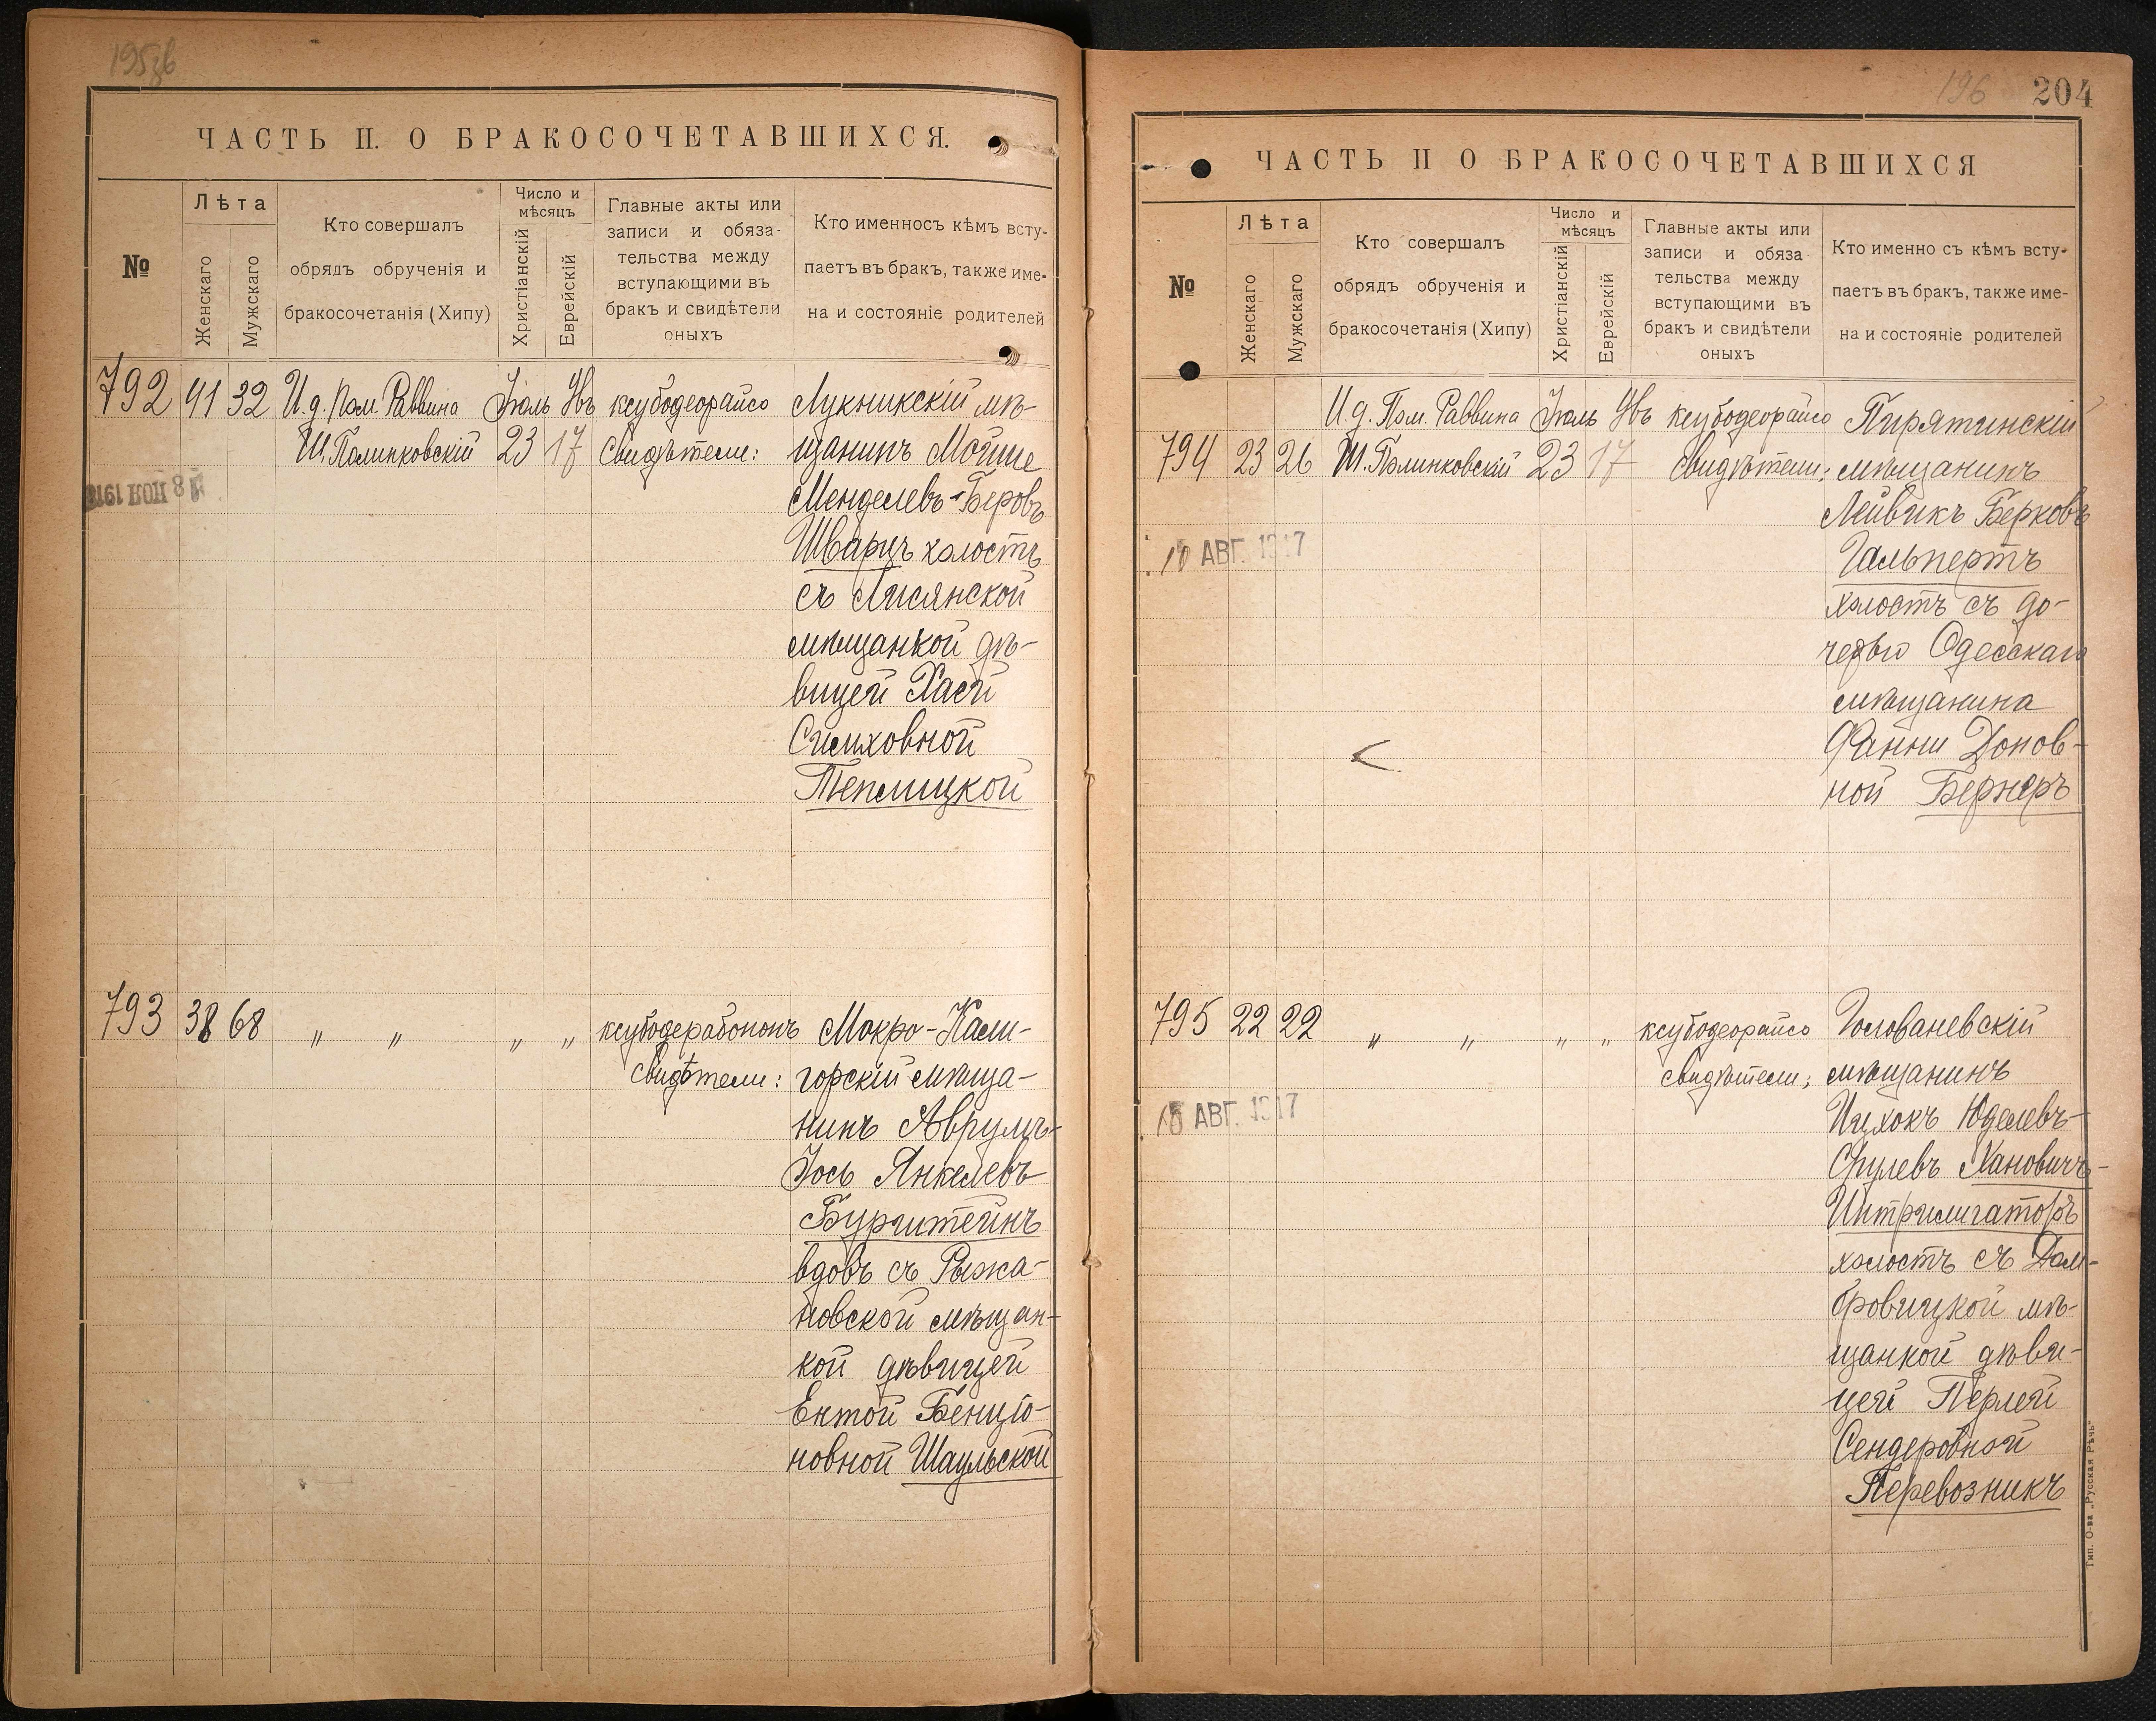 195зв
ЧАСТЬ II. О БРАКОСОЧЕТАВШИХСЯ.
№
Лѣта
Женскаго
Мужскаго
Кто совершалъ
обрядъ обрученія и
бракосочетанія (Хипу)
Число и
мѣсяцъ
Христіанскій
Еврейскій
Главные акты или
записи и обяза-
тельства между
вступающими въ
бракъ и свидѣтели
оныхъ
Кто именносъ кѣмъ всту-
паетъ въ бракъ, также име-
на и состояніе родителей
792 41 32 И.д. Пом. Раввина Іюль Явъ ксубодеорайсо Лукникскій мѣ-
Ш. Полинковскій 23 17 Свидѣтели: щанинъ Мойше
Менделевъ-Беровъ
Шварцъ холостъ
съ Лисянской
мѣщанкой дѣ-
вицей Хаей
Симховной
Теплицкой
793 38 68 " " " " ксубодерабононъ Мокро-Кали-
Свидѣтели: горскій мѣща-
нинъ Аврумъ-
Іось Янкелевъ
Бурштейнъ
вдовъ съ Рыжа-
новской мѣщан-
кой дѣвицей
Ентой Бенціо-
новной Шаульской
196 204
ЧАСТЬ II О БРАКОСОЧЕТАВШИХСЯ
№
Лѣта
Женскаго
Мужскаго
Кто совершалъ
обрядъ обрученія и
бракосочетанія (Хипу)
Число и
мѣсяцъ
Христіанскій
Еврейскій
Главные акты или
записи и обяза
тельства между
вступающими въ
бракъ и свидѣтели
оныхъ
Кто именно съ кѣмъ всту-
паетъ въ бракъ, также име-
на и состояніе родителей
И.д. Пом. Раввина Іюль Явъ ксубодеорайсо Пирятинскій
794 23 26 Ш. Полинковскій 23 17 Свидѣтели: мѣщанинъ
Лейвикъ Берковъ
10 АВГ. 1917
Гальпертъ
холостъ съ до-
черью Одесскаго
мѣщанина
Фанни Доновь-
ной Бернеръ
795 22 22 " " " " ксубодеорайсо Голованевскій
свидѣтели; мѣщанинъ
10 АВГ. 1917
Ицхокъ Юделевъ-
Срулевъ Хановичъ-
Интрилигаторъ
холостъ съ Дом-
бровицкой мѣ-
щанкой дѣви-
цей Перлей
Сендеровной
Перевозникъ
Тип. О-ва „Русская Рѣчь"